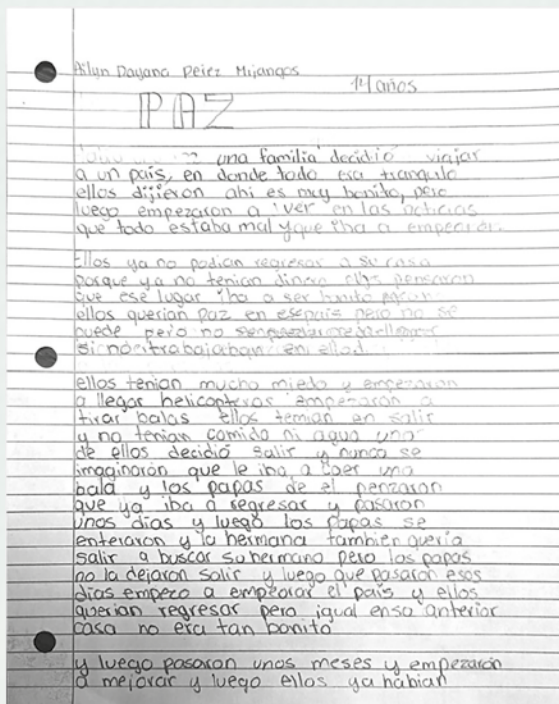 Ailyn Dayana Pérez Mijangos
14 años
PAZ
una familia decidió viajar
a un país, en donde todo era tranquilo
ellos dijieron ahi es muy bonito, pero
luego empezaron a ver en las noticias
que todo estaba mal y que iba a empeorar.
Ellos ya no podian regresar a su casa
porque ya no tenian dinero ellos pensaron
que ese lugar iba a ser bonito
ellos querian Paz en ese pais pero no se
puede pero no
si no trabajaban en ello.
ellos tenian mucho miedo y empezaron
a llegar helicopteros empezaron a
tirar balas ellos temian en salir
y no tenian comida ni agua uno
de ellos decidió salir y nunca se
imaginaron que le iba a caer una
bala y los papas de el penzaron
que ya iba a regresar y pasaron
unos dias y luego los papas se
enteraron y la hermana tambien queria
salir a buscar su hermano pero los papas
no la dejaron salir y luego que pasaron esos
dias empezo a empeorar el país y ellos
querian regresar pero igual en su anterior
casa no era tan bonito
y luego pasaron unos meses y empezaron
a mejorar y luego ellos ya habian